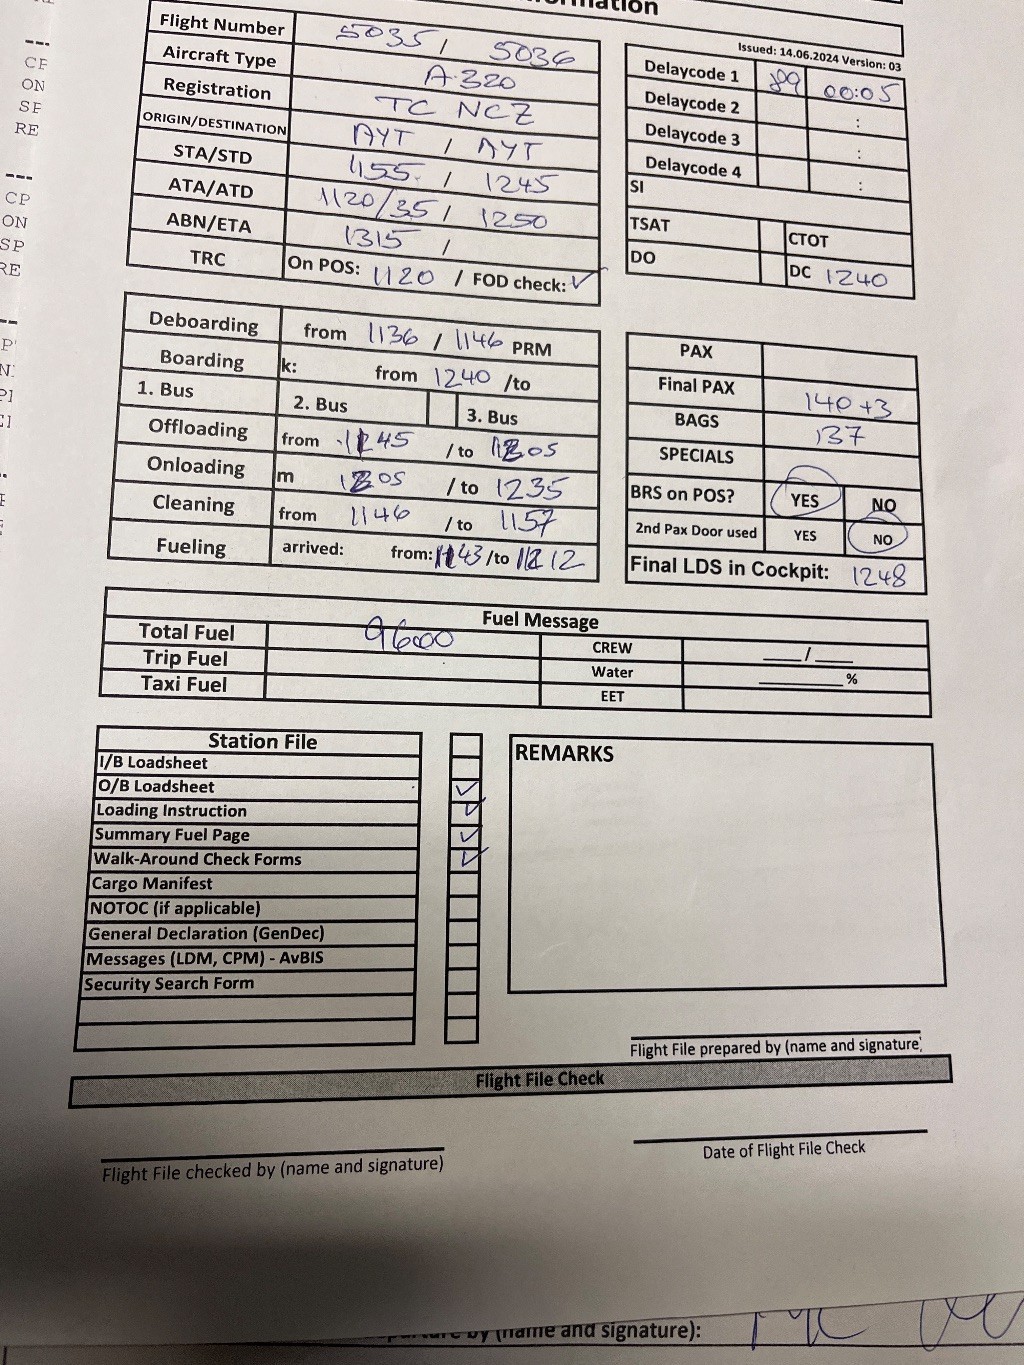 Flight Number 5035 / 5036
Aircraft Type A-320
Registration TC NCZ
ORIGIN/DESTINATION AYT / AYT
STA/STD 1155 / 1245
ATA/ATD 1120/35 / 1250
ABN/ETA 1315 /
TRC On POS: 1120 / FOD check: ✓
Issued: 14.06.2024 Version: 03
Delaycode 1 89 00:05
Delaycode 2 :
Delaycode 3 :
Delaycode 4 :
SI
TSAT CTOT
DO DC 1240
Deboarding from 1136 / 1146 PRM
Boarding k: from 1240 /to
1. Bus 2. Bus 3. Bus
Offloading from 1145 /to 1205
Onloading m 1205 /to 1235
Cleaning from 1146 /to 1157
Fueling arrived: from: 1143 /to 1212
PAX
Final PAX 140 +3
BAGS 137
SPECIALS
BRS on POS? YES NO
2nd Pax Door used YES NO
Final LDS in Cockpit: 1248
Fuel Message
Total Fuel 9600 CREW ___/___
Trip Fuel Water ______%
Taxi Fuel EET
Station File
I/B Loadsheet
O/B Loadsheet ✓
Loading Instruction ✓
Summary Fuel Page ✓
Walk-Around Check Forms ✓
Cargo Manifest
NOTOC (if applicable)
General Declaration (GenDec)
Messages (LDM, CPM) - AvBIS
Security Search Form
REMARKS
Flight File prepared by (name and signature)
Flight File Check
Flight File checked by (name and signature)
Date of Flight File Check
by (name and signature):
CP
ON
SP
RE